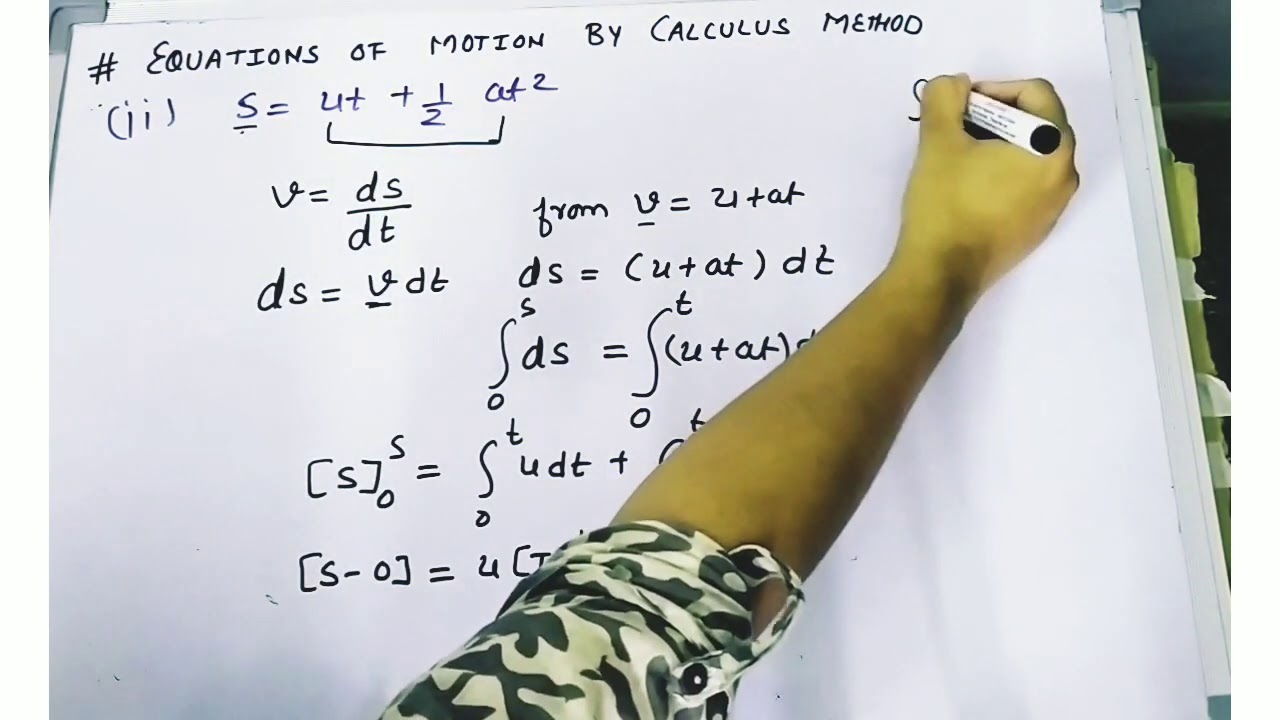 # EQUATIONS OF MOTION BY CALCULUS METHOD
(ii) S = ut + 1/2 at²
v = ds/dt
from v = u+at
ds = v dt
ds = (u+at) dt
∫₀ˢ ds = ∫₀ᵗ (u+at)d
[S]₀ˢ = ∫₀ᵗ u dt +
[S-0] = u [